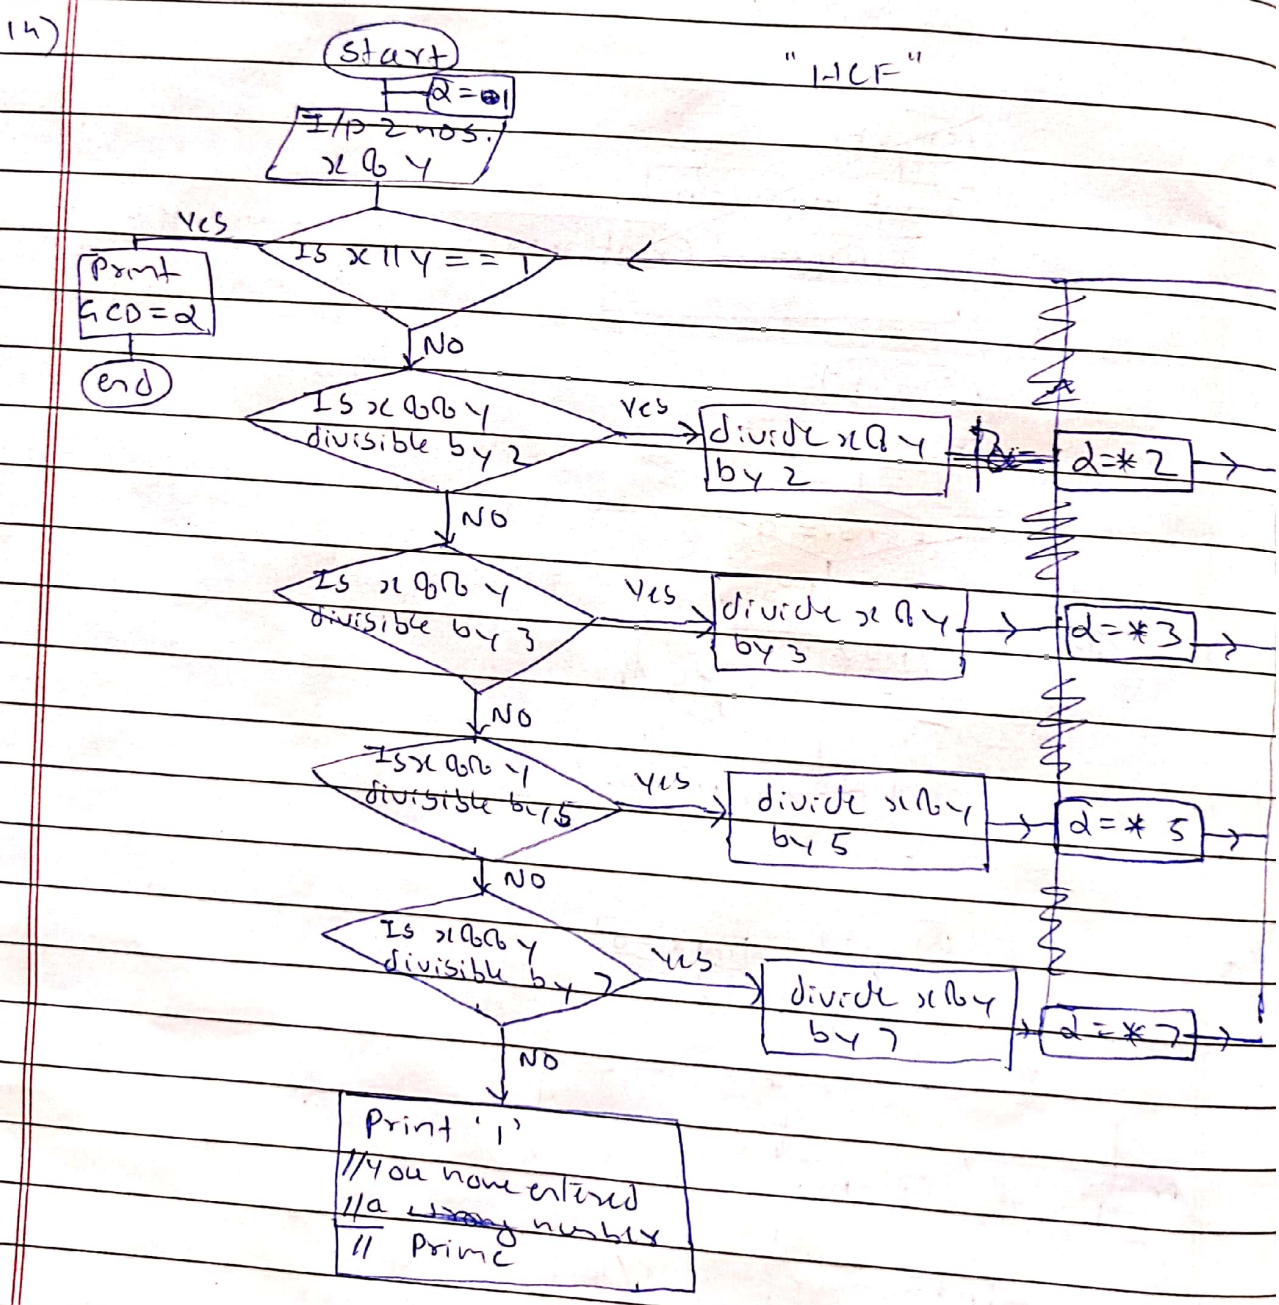 14)
"HCF"
Start
α = 1
I/p 2 nos.
x & y
Yes
Is x || y == 1
Print
GCD = α
end
NO
Is x && y
divisible by 2
Yes
divide x & y
by 2
α = * 2
NO
Is x && y
divisible by 3
Yes
divide x & y
by 3
α = * 3
NO
Is x && y
divisible by 5
Yes
divide x & y
by 5
α = * 5
NO
Is x && y
divisible by 7
Yes
divide x & y
by 7
α = * 7
NO
Print '1'
//you have entered
//a number
// Prime